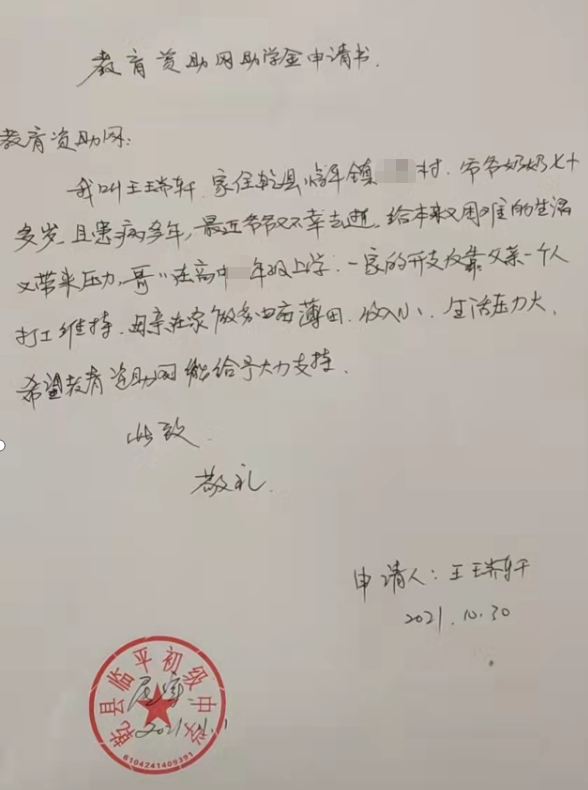 教育资助网助学金申请书.
教育资助网:
我叫王瑞轩.家住乾县临平镇 村.爷爷奶奶七十
多岁.且患病多年,最近爷爷又不幸去逝.给本来又困难的生活
又带来压力,哥〃在高中 年级上学.一家的开支仅靠父亲一个人
打工维持.母亲在家做务 亩薄田.收入小、生活压力大、
希望教育资助网能给予大力支持.
此致
敬礼.
申请人:王瑞轩
2021.10.30
乾县临平初级中学
属实
2021.11.1
6104241409391